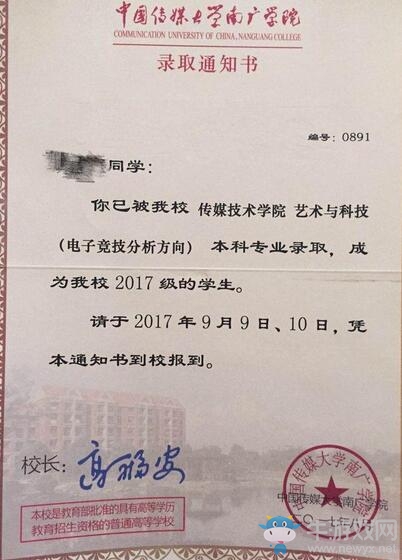 中国传媒大学南广学院
COMMUNICATION UNIVERSITY OF CHINA, NANGUANG COLLEGE
录取通知书
编号：0891
同学：
你已被我校 传媒技术学院 艺术与科技
（电子竞技分析方向） 本科专业录取，成
为我校 2017 级的学生。
请于 2017 年 9 月 9 日、10 日，凭
本通知书到校报到。
校长：
本校是教育部批准的具有高等学历
教育招生资格的普通高等学校
中国传媒大学南广学院
中国传媒大学南广学院
二〇一七年八月
手游戏网
www.newyx.net